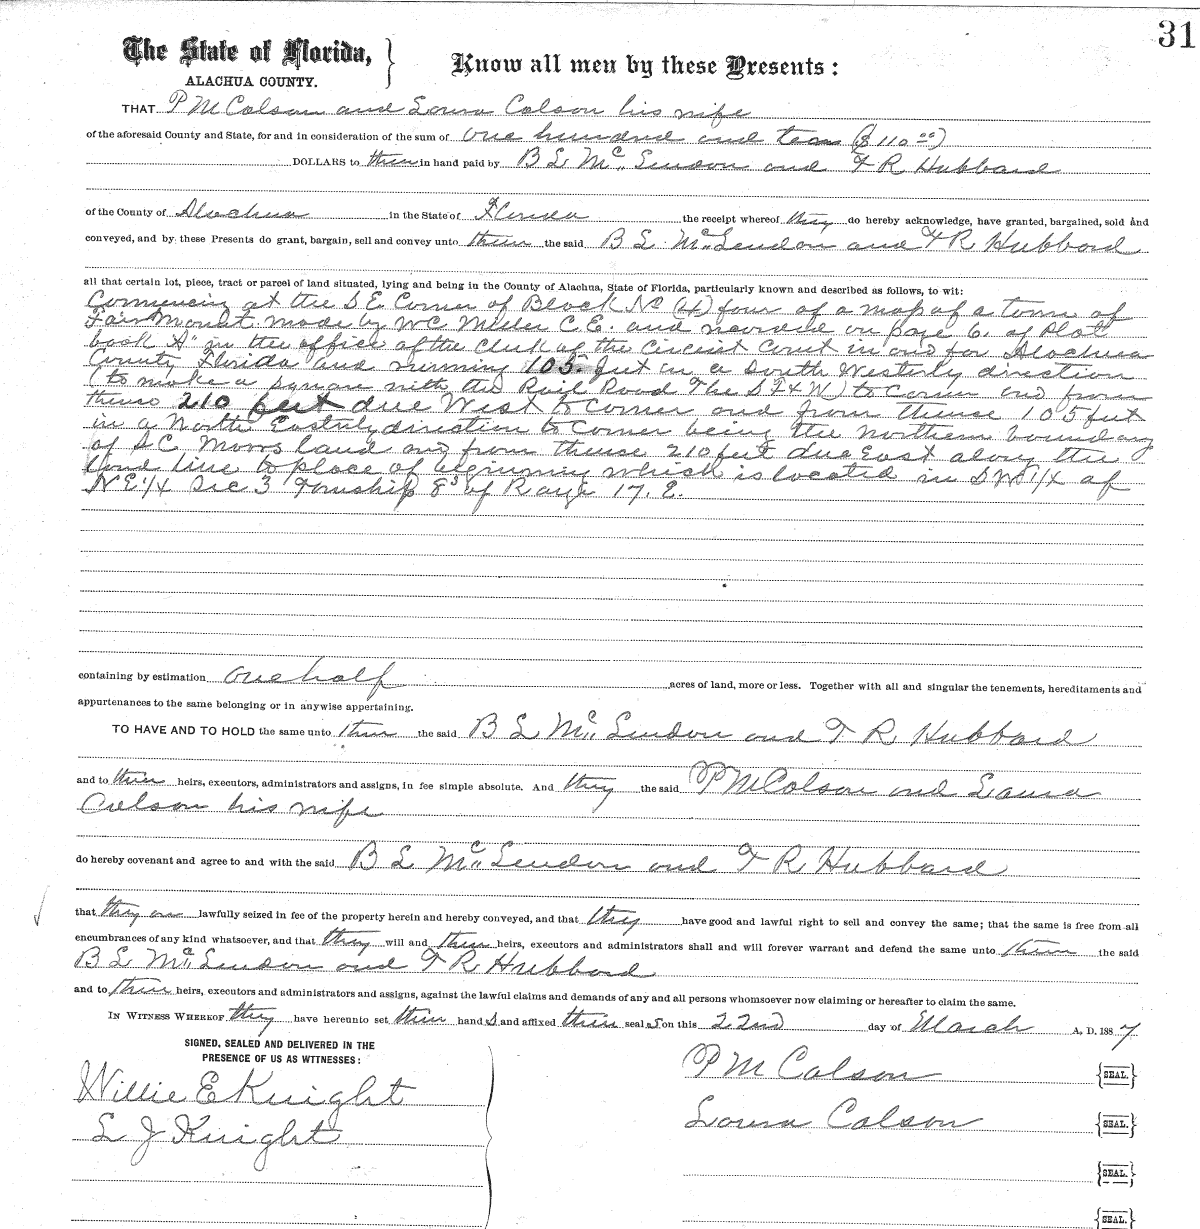 31
The State of Florida, } Know all men by these Presents:
ALACHUA COUNTY.
THAT P M Colson and Laura Colson his wife
of the aforesaid County and State, for and in consideration of the sum of one hundred and ten ($110.00)
DOLLARS to them in hand paid by B L McLendon and F R Hubbard
of the County of Alachua in the State of Florida the receipt whereof they do hereby acknowledge, have granted, bargained, sold and
conveyed, and by these Presents do grant, bargain, sell and convey unto them the said B L McLendon and F R Hubbard
all that certain lot, piece, tract or parcel of land situated, lying and being in the County of Alachua, State of Florida, particularly known and described as follows, to wit:
Comencing at the S E Corner of Block No (4) four of a map of a town of
Fair Mount made by W C Miller C.E. and recorded on page 6. of Plat
book "A" in the office of the Clerk of the Circuit Court in and for Alachua
County Florida and running 105. feet in a South Westerly direction
(to make a square with the Rail Road The S F & W) to Corner and from
thense 210 feet due West to Corner and from thense 105 feet
in a North Easterly direction to Corner being the northern boundary
of S C Moors land and from thense 210 feet due East along the
land line to place of beginning which is located in S W 1/4 of
N E 1/4 Sec 3 Township 8 S of Range 17. E.
containing by estimation one half acres of land, more or less. Together with all and singular the tenements, hereditaments and
appurtenances to the same belonging or in anywise appertaining.
TO HAVE AND TO HOLD the same unto them the said B L McLendon and F R Hubbard
and to their heirs, executors, administrators and assigns, in fee simple absolute. And they the said P M Colson and Laura
Colson his wife
do hereby covenant and agree to and with the said B L McLendon and F R Hubbard
that they are lawfully seized in fee of the property herein and hereby conveyed, and that they have good and lawful right to sell and convey the same; that the same is free from all
encumbrances of any kind whatsoever, and that they will and their heirs, executors and administrators shall and will forever warrant and defend the same unto them the said
B L McLendon and F R Hubbard
and to their heirs, executors and administrators and assigns, against the lawful claims and demands of any and all persons whomsoever now claiming or hereafter to claim the same.
IN WITNESS WHEREOF they have hereunto set their hand s and affixed their seal s on this 22nd day of March A. D. 1887
SIGNED, SEALED AND DELIVERED IN THE
PRESENCE OF US AS WITNESSES:
Willie E Knight
L J Knight
P M Colson {SEAL.}
Laura Colson {SEAL.}
{SEAL.}
{SEAL.}